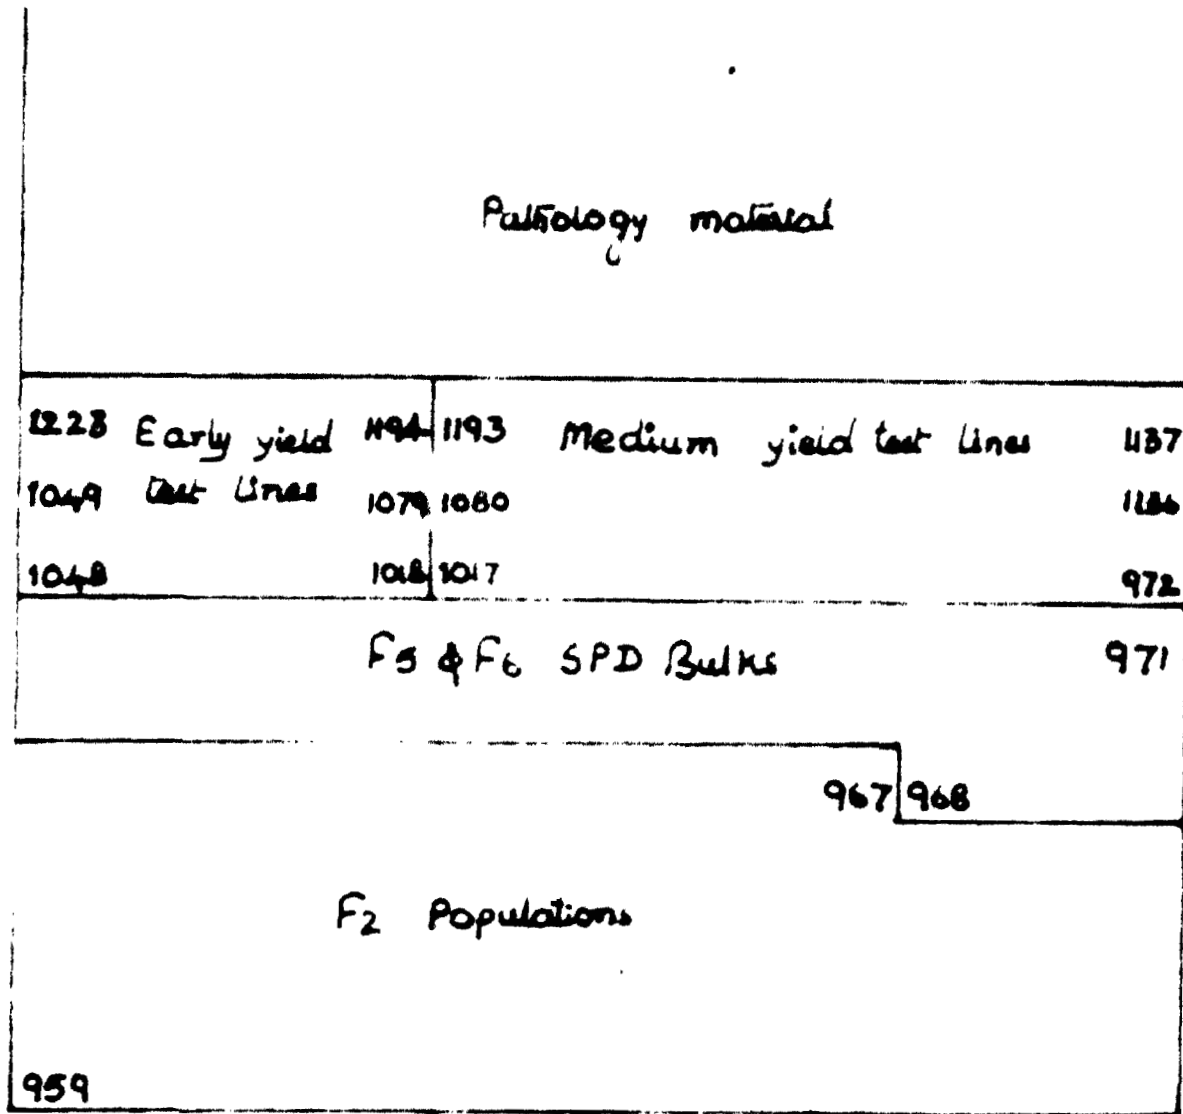 Pathology material
1223 Early yield 1194 1193 Medium yield test lines 1137
1049 test lines 1079 1080 1136
1048 1018 1017 972
F5 & F6 SPD Bulks 971
967 968
F2 Populations
959